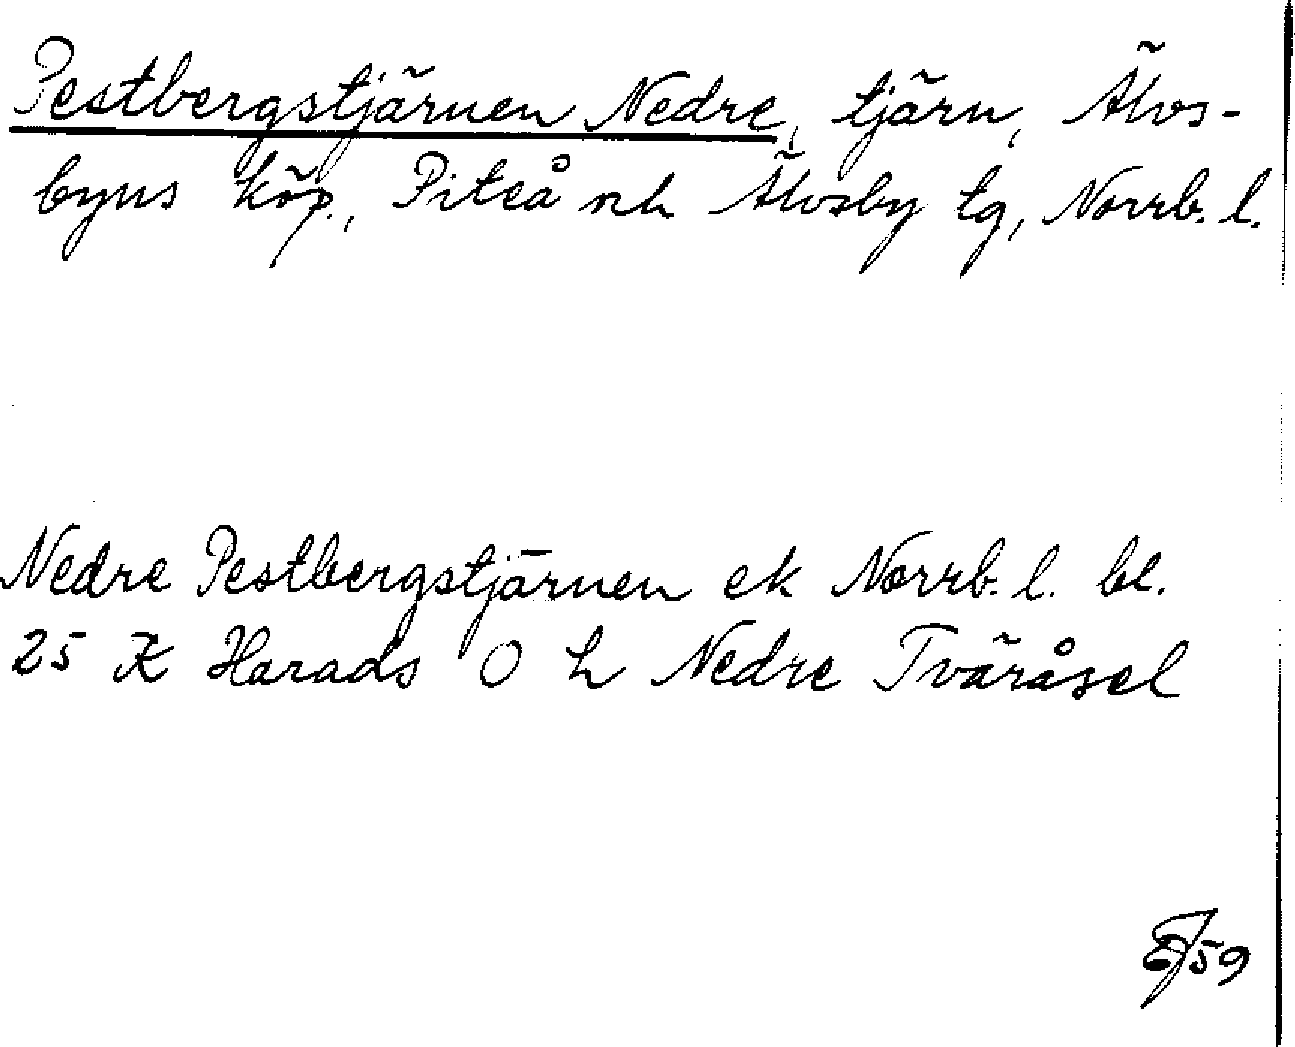 Pestbergstjärnen Nedre, tjärn, Älvs-
byns köp., Piteå nh Älvsby tg, Norrb. l.
Nedre Pestbergstjärnen ek Norrb. l. bl.
25 K Harads O h Nedre Tväråsel
59